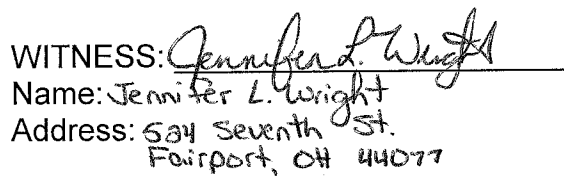 WITNESS: Jennifer L. Wright
Name: Jennifer L. Wright
Address: 524 Seventh St.
Fairport, OH 44077